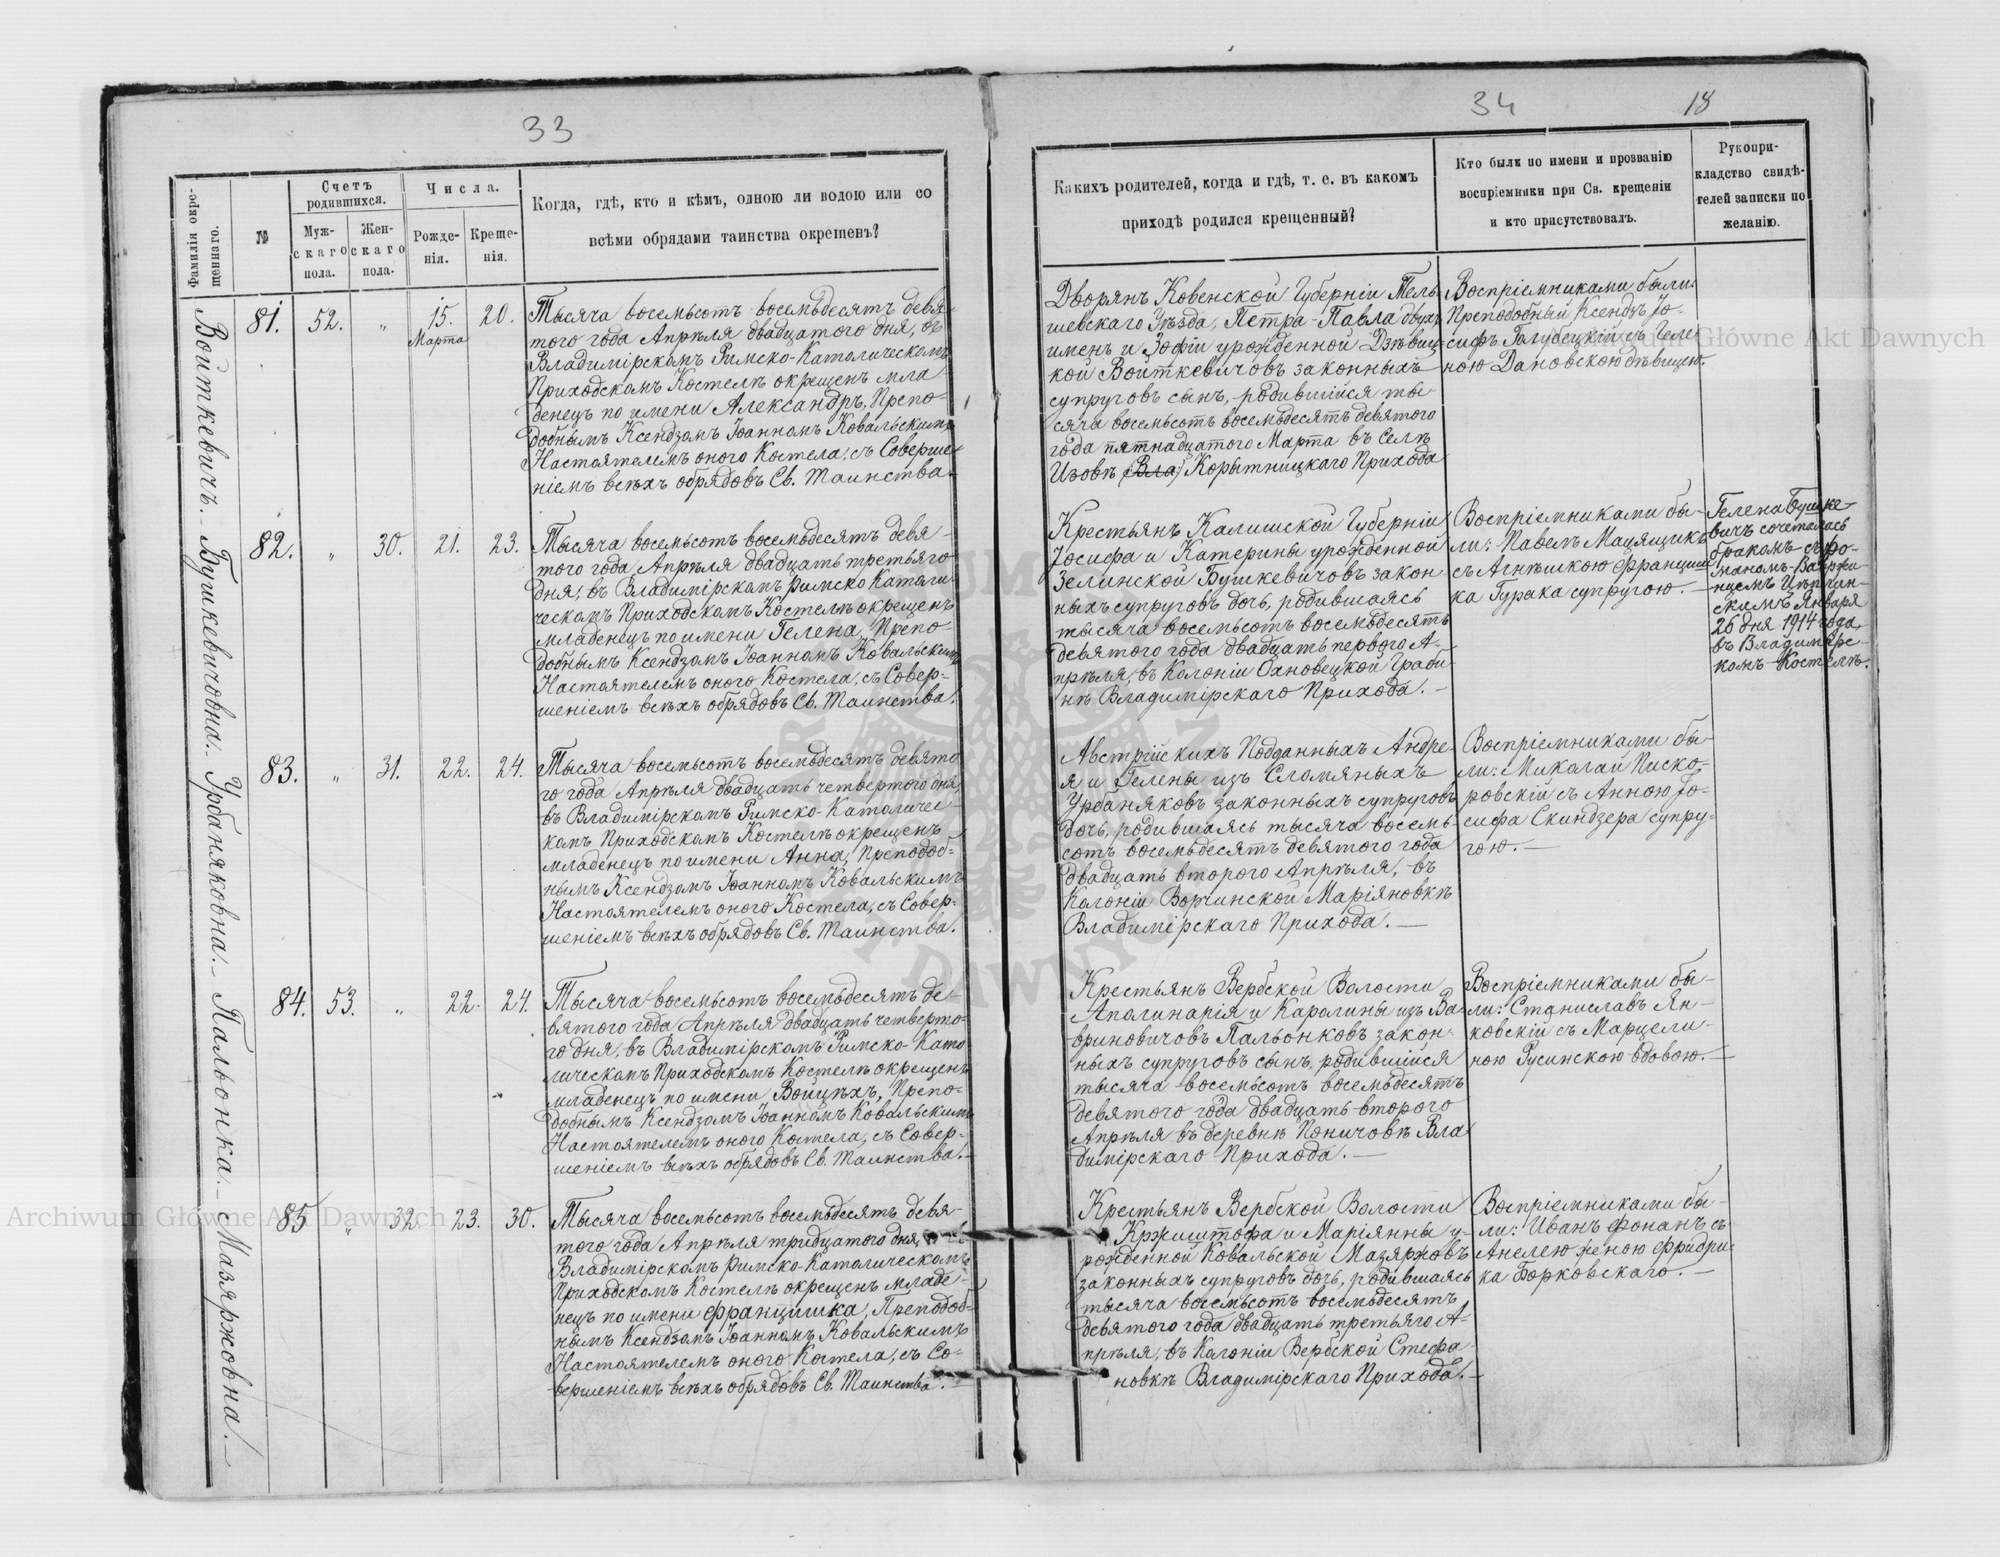 33
34
18
Фамилія окре-
щеннаго.
№
Счетъ
родившихся.
Муж-
скаго
пола.
Жен-
скаго
пола.
Числа.
Рожде-
нія.
Креще-
нія.
Когда, гдѣ, кто и кѣмъ, одною ли водою или со
всѣми обрядами таинства окрещенъ?
Какихъ родителей, когда и гдѣ, т. е. въ какомъ
приходѣ родился крещенный?
Кто были по имени и прозванію
воспріемники при Св. крещеніи
и кто присутствовалъ.
Рукопри-
кладство свидѣ-
телей записки по
желанію.
Войткевичъ.
81.
52.
"
15.
Марта
20.
Тысяча восемьсотъ восемьдесятъ девя-
того года Апрѣля двадцатого дня, въ
Владимірскомъ Римско-Католическомъ
Приходскомъ Костелѣ окрещенъ мла
денецъ по имени Александръ, Препо-
добнымъ Ксендзомъ Іоанномъ Ковальскимъ
Настоятелемъ оного Костела, съ Соверше-
ніемъ всѣхъ обрядовъ Св. Таинства.
Дворянъ Ковенской Губерніи Тель-
шевскаго Уѣзда, Петра-Павла двухъ
именъ и Зофіи урожденной Дзѣвиц-
кой Войткевичовъ законныхъ
супруговъ сынъ, родившійся ты
сяча восемьсотъ восемьдесятъ девятого
года пятнадцатого Марта въ Селѣ
Изовѣ (Вла) Корытницкаго Прихода
Воспріемниками были:
Преподобный Ксендзъ Іо-
сифъ Голубецкій съ Геле-
ною Дановскою дѣвицею.
Бушкевичовна.
82.
"
30.
21.
23.
Тысяча восемьсотъ восемьдесятъ девя-
того года Апрѣля двадцать третьяго
дня, въ Владимірскомъ Римско Католи-
ческомъ Приходскомъ Костелѣ окрещенъ
младенецъ по имени Гелена, Препо-
добнымъ Ксендзомъ Іоанномъ Ковальскимъ
Настоятелемъ оного Костела, съ Совер-
шеніемъ всѣхъ обрядовъ Св. Таинства.
Крестьянъ Калишской Губерніи
Іосифа и Катерины урожденной
Зелинской Бушкевичовъ закон-
ныхъ супруговъ дочь, родившаяся
тысяча восемьсотъ восемьдесятъ
девятого года двадцать первого А-
прѣля, въ Колоніи Охновецкой Граби-
нѣ Владимірскаго Прихода.
Воспріемниками бы-
ли: Павелъ Мацящикъ
съ Агнѣшкою Францишка
Гурака супругою.
Гелена Бушке-
вичъ сочеталась
бракомъ съ Ро-
маномъ
Января
26 дня 1914 года,
въ Владимірс-
комъ Костелѣ.
Урбаняковна.
83.
"
31.
22.
24.
Тысяча восемьсотъ восемьдесятъ девято
го года Апрѣля двадцать четвертого дня,
въ Владимірскомъ Римско-Католичес-
комъ Приходскомъ Костелѣ окрещенъ
младенецъ по имени Анна, Преподоб-
нымъ Ксендзомъ Іоанномъ Ковальскимъ
Настоятелемъ оного Костела, съ Совер-
шеніемъ всѣхъ обрядовъ Св. Таинства.
Австрійскихъ Подданныхъ Андре-
я и Гелены изъ Сломяныхъ
Урбаняковъ законныхъ супруговъ
дочь, родившаяся тысяча восемь-
сотъ восемьдесятъ девятого года
двадцать второго Апрѣля, въ
Колоніи Вожинской Маріяновкѣ
Владимірскаго Прихода.
Воспріемниками бы-
ли: Миколай Писко-
ровскій съ Анною Іо-
сифа Скиндзера супру-
гою.
Пальонка.
84.
53.
"
22.
24.
Тысяча восемьсотъ восемьдесятъ де-
вятого года Апрѣля двадцать четверто-
го дня, въ Владимірскомъ Римско-Като
лическомъ Приходскомъ Костелѣ окрещенъ
младенецъ по имени Войцѣхъ, Препо-
добнымъ Ксендзомъ Іоанномъ Ковальскимъ
Настоятелемъ оного Костела, съ Совер-
шеніемъ всѣхъ обрядовъ Св. Таинства.
Крестьянъ Вербской Волости
Аполинарія и Каролины изъ Ва-
вриновичовъ Пальонковъ закон-
ныхъ супруговъ сынъ, родившійся
тысяча восемьсотъ восемьдесятъ
девятого года двадцать второго
Апрѣля въ деревнѣ Поничовѣ Вла
димірскаго Прихода.
Воспріемниками бы-
ли: Станиславъ Ян-
ковскій съ Марцели-
ною Русинскою вдовою.
Мазяржовна.
85
"
32
23.
30.
Тысяча восемьсотъ восемьдесятъ девя-
того года Апрѣля тридцатого дня, въ
Владимірскомъ Римско-Католическомъ
Приходскомъ Костелѣ окрещенъ младе-
нецъ по имени Францишка, Преподоб-
нымъ Ксендзомъ Іоанномъ Ковальскимъ
Настоятелемъ оного Костела, съ Со-
вершеніемъ всѣхъ обрядовъ Св. Таинства.
Крестьянъ Вербской Волости
Кржиштофа и Маріянны у-
рожденной Ковальской Мазяржовъ
законныхъ супруговъ дочь, родившаяся
тысяча восемьсотъ восемьдесятъ
девятого года двадцать третьяго А-
прѣля, въ Колоніи Вербской Стефа-
новкѣ Владимірскаго Прихода.
Воспріемниками бы-
ли: Иванъ Фонанъ съ
Анелею женою Фридри-
ка Борковскаго.
Archiwum Główne Akt Dawnych
Archiwum Główne Akt Dawnych